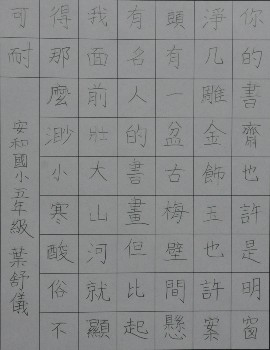 你的書齋也許是明窗
淨几雕金飾玉也許案
頭有一盆古梅壁間懸
有名人的書畫但比起
我面前壯大山河就顯
得那麼渺小寒酸俗不
可耐
安和國小五年級 葉舒儀